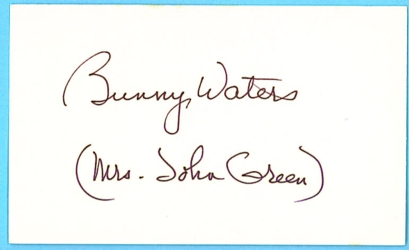 Bunny Waters
(Mrs. John Green)